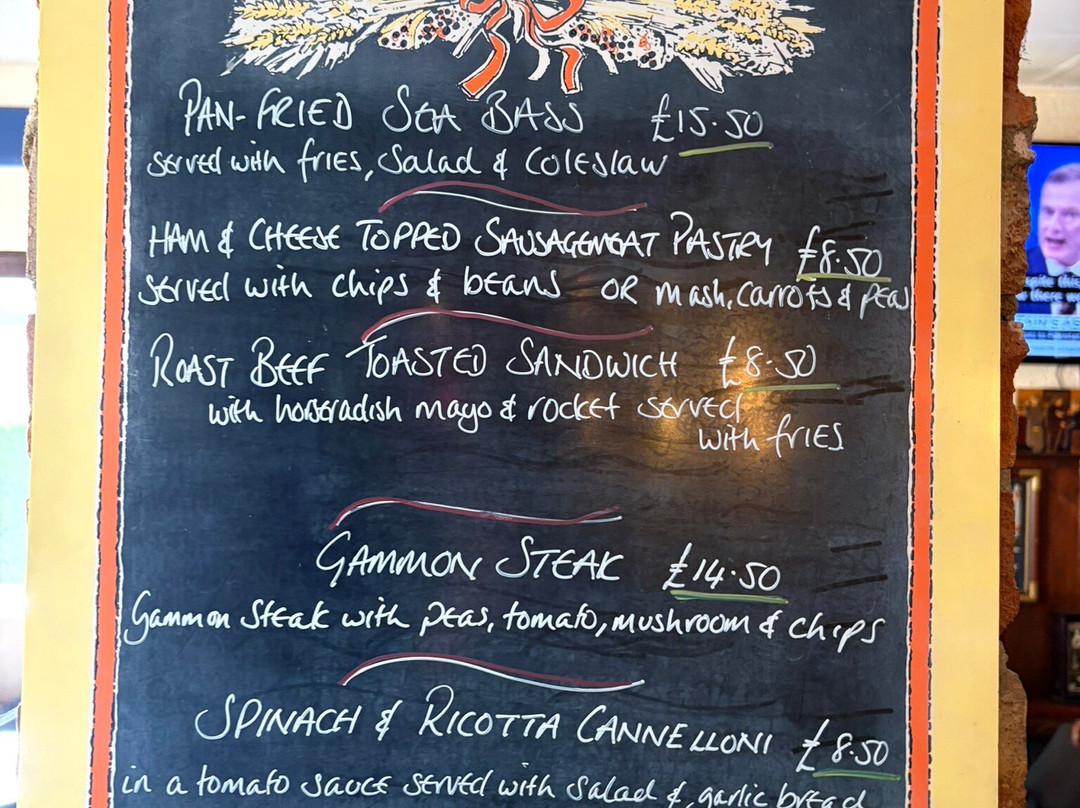 PAN-FRIED SEA BASS £15.50
served with fries, Salad & Coleslaw
HAM & CHEESE TOPPED SAUSAGEMEAT PASTRY £8.50
served with chips & beans OR mash, carrots & peas
ROAST BEEF TOASTED SANDWICH £8.50
with horseradish mayo & rocket served
with fries
GAMMON STEAK £14.50
Gammon Steak with peas, tomato, mushroom & chips
SPINACH & RICOTTA CANNELLONI £8.50
in a tomato sauce served with Salad & garlic bread